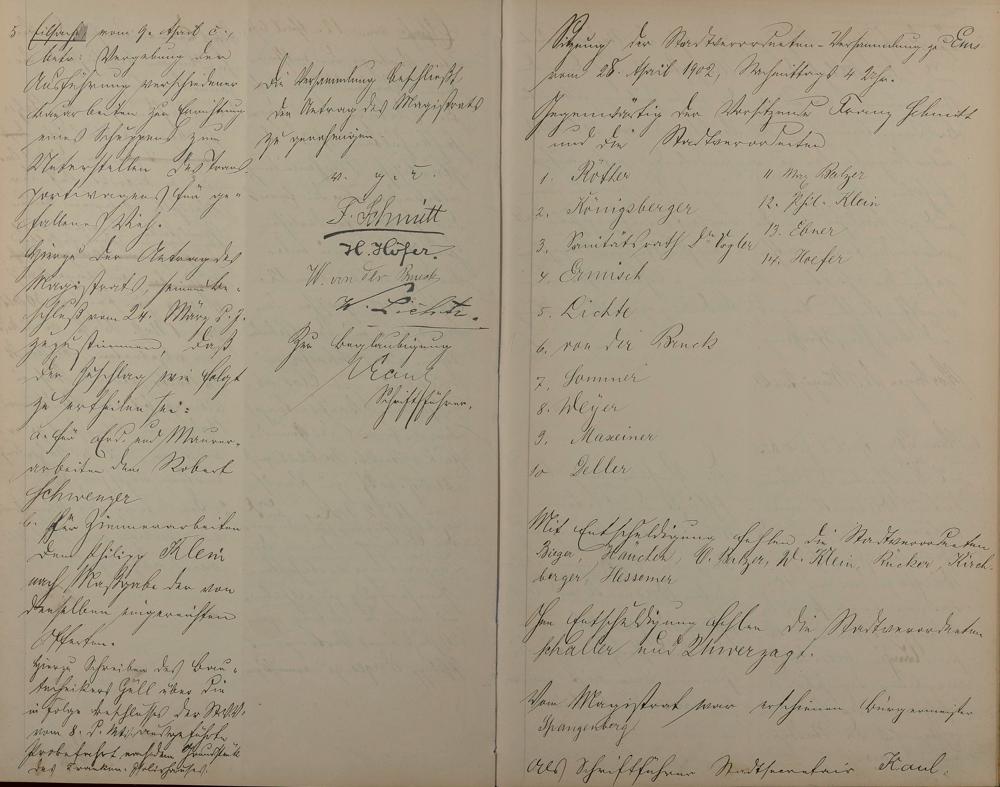 5 Eilsache vom 9. April c.,
betr: Vergebung der
Ausführung verschiedener
Bauarbeiten zur Errichtung
eines Schuppens zum
Unterstellen des Trans-
portwagens für ge-
fallenes Vieh.
Hierzu der Antrag des
Magistrats, seinem Be-
schluß vom 24. März d. J.
zuzustimmen, daß
der Zuschlag wie folgt
zu ertheilen sei:
a. für Erd- und Maurer-
arbeiten dem Robert
Schwenzer
b. für Zimmerarbeiten
dem Philipp Klein
nach Maßgabe der von
denselben eingereichten
Offerten.
Hierzu Schreiben des Bau-
technikers Güll über die
in Folge Beschlusses der St.V.V.
vom 8. d. Mts. ausgeführte
Probefahrt nach dem Grundstück
des
Die Versammlung beschließt
den Antrag des Magistrats
zu genehmigen.
v. g. u.
F. Schmitt
H. Höfer.
W. von der Bruck
W. Lichte.
Zur Beglaubigung
Kaul
Schriftführer.
Sitzung der Stadtverordneten-Versammlung zu Ems
vom 28. April 1902, Nachmittags 4 Uhr.
Gegenwärtig der Vorsitzende Franz Schmitt
und die Stadtverordneten
1. Röther
2. Königsberger
3. Sanitätsrath Dr. Vogler
4. Ermisch
5. Lichte
6. von der Bruck
7. Sommer
8. Weyer
9. Maxeiner
10 Deller
11 Max Balzer
12. Phil. Klein
13. Ebner
14. Hoefer
Mit Entschuldigung fehlen die Stadtverordneten
Bieger, Häuchen, O. Balzer, W. Klein, Rücker, Kirch-
berger, Hessemer
Ohne Entschuldigung fehlen die Stadtverordneten
Schaller und Schwerzagt.
Vom Magistrat war erschienen Bürgermeister
Spangenberg
Als Schriftführer Stadtsecretair Kaul.